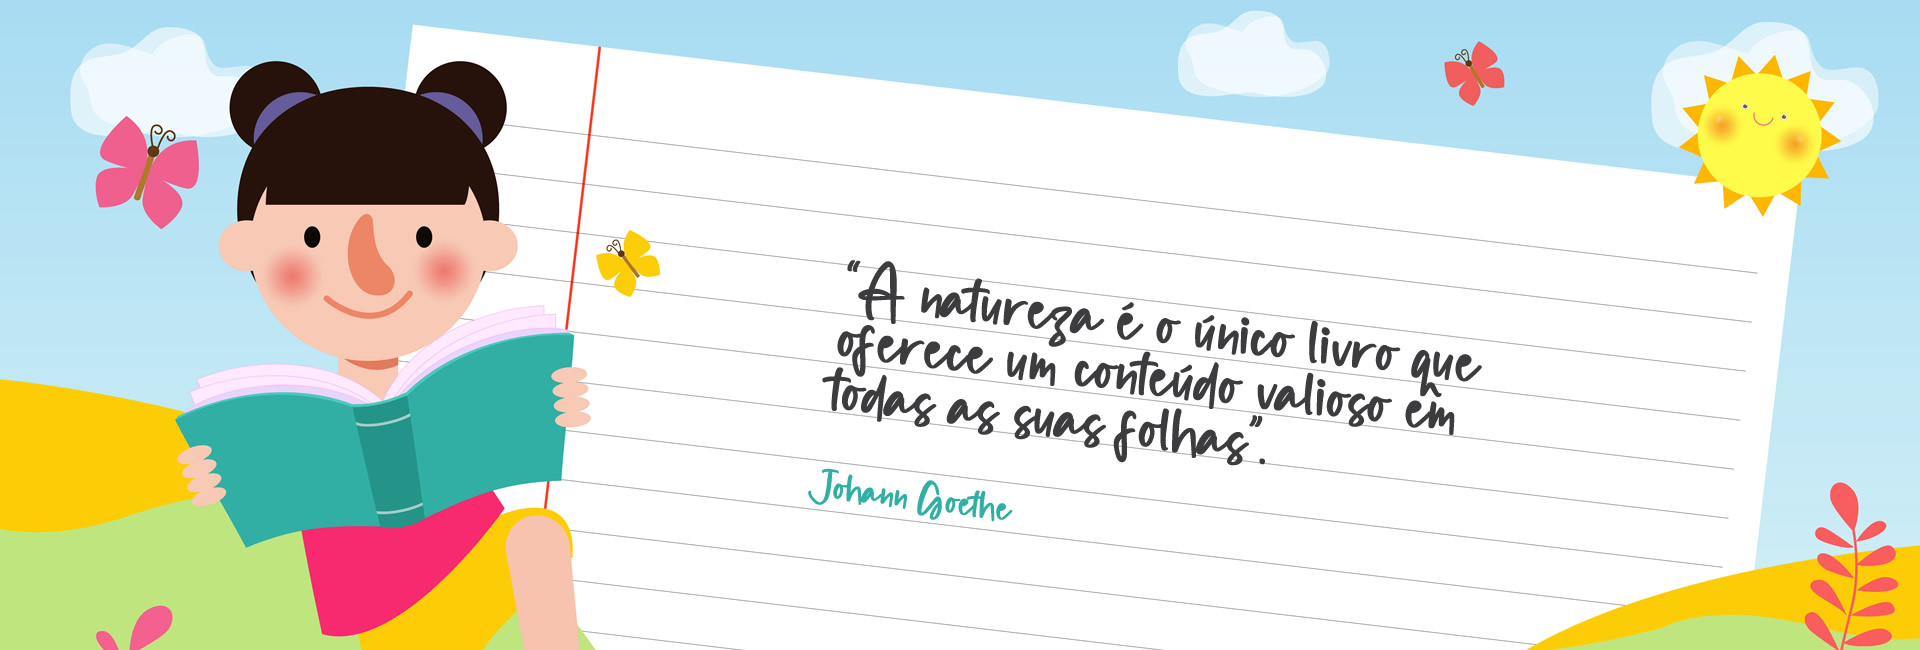 “A natureza é o único livro que
oferece um conteúdo valioso em
todas as suas folhas”.
Johann Goethe